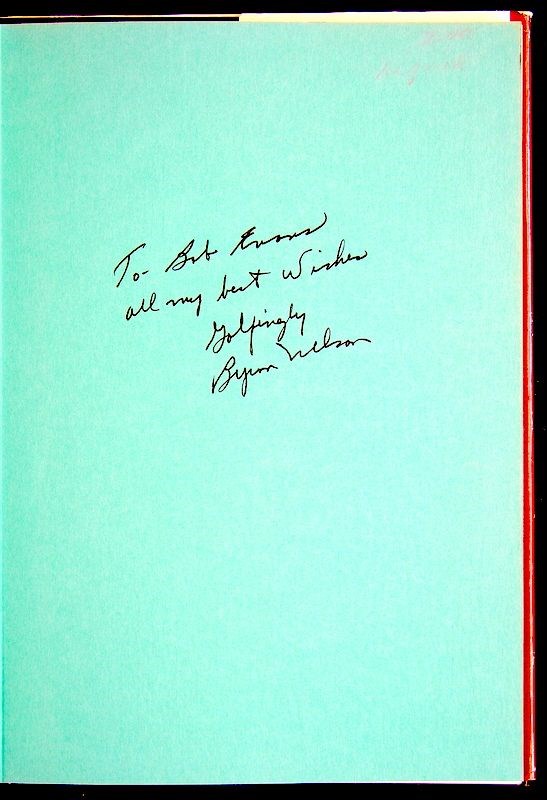 To Bob Evans
all my best wishes
Golfingly
Byron Nelson